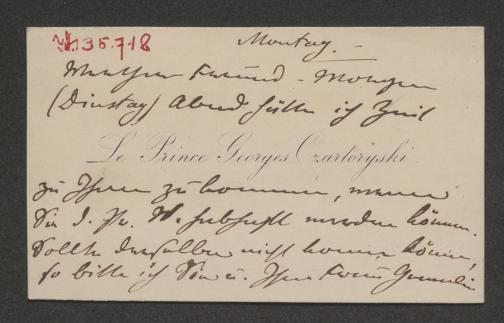 135.718
Montag.
Werther Freund - Morgen
(Dinstag) Abend hätte ich Zeit
Le Prince Georges Czartoryski
zu Ihnen zu kommen, wenn
Sie d. H. habhaft werden können.
Sollte derselbe nicht kommen können,
so bitte ich Sie u. Ihre Frau Gemalin